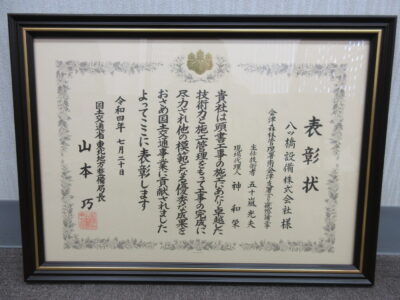 表彰状
八ッ橋設備株式会社 様
主任技術者 五十嵐光夫
現場代理人 神 和栄
貴社は頭書工事の施工にあたり卓越した
技術力と施工管理をもって工事の完成に
尽力され他の模範となる優秀な成果を
おさめ国土交通事業に貢献されました
よってここに表彰します
令和四年 七月二十日
国土交通省 東北地方整備局長
山本 巧